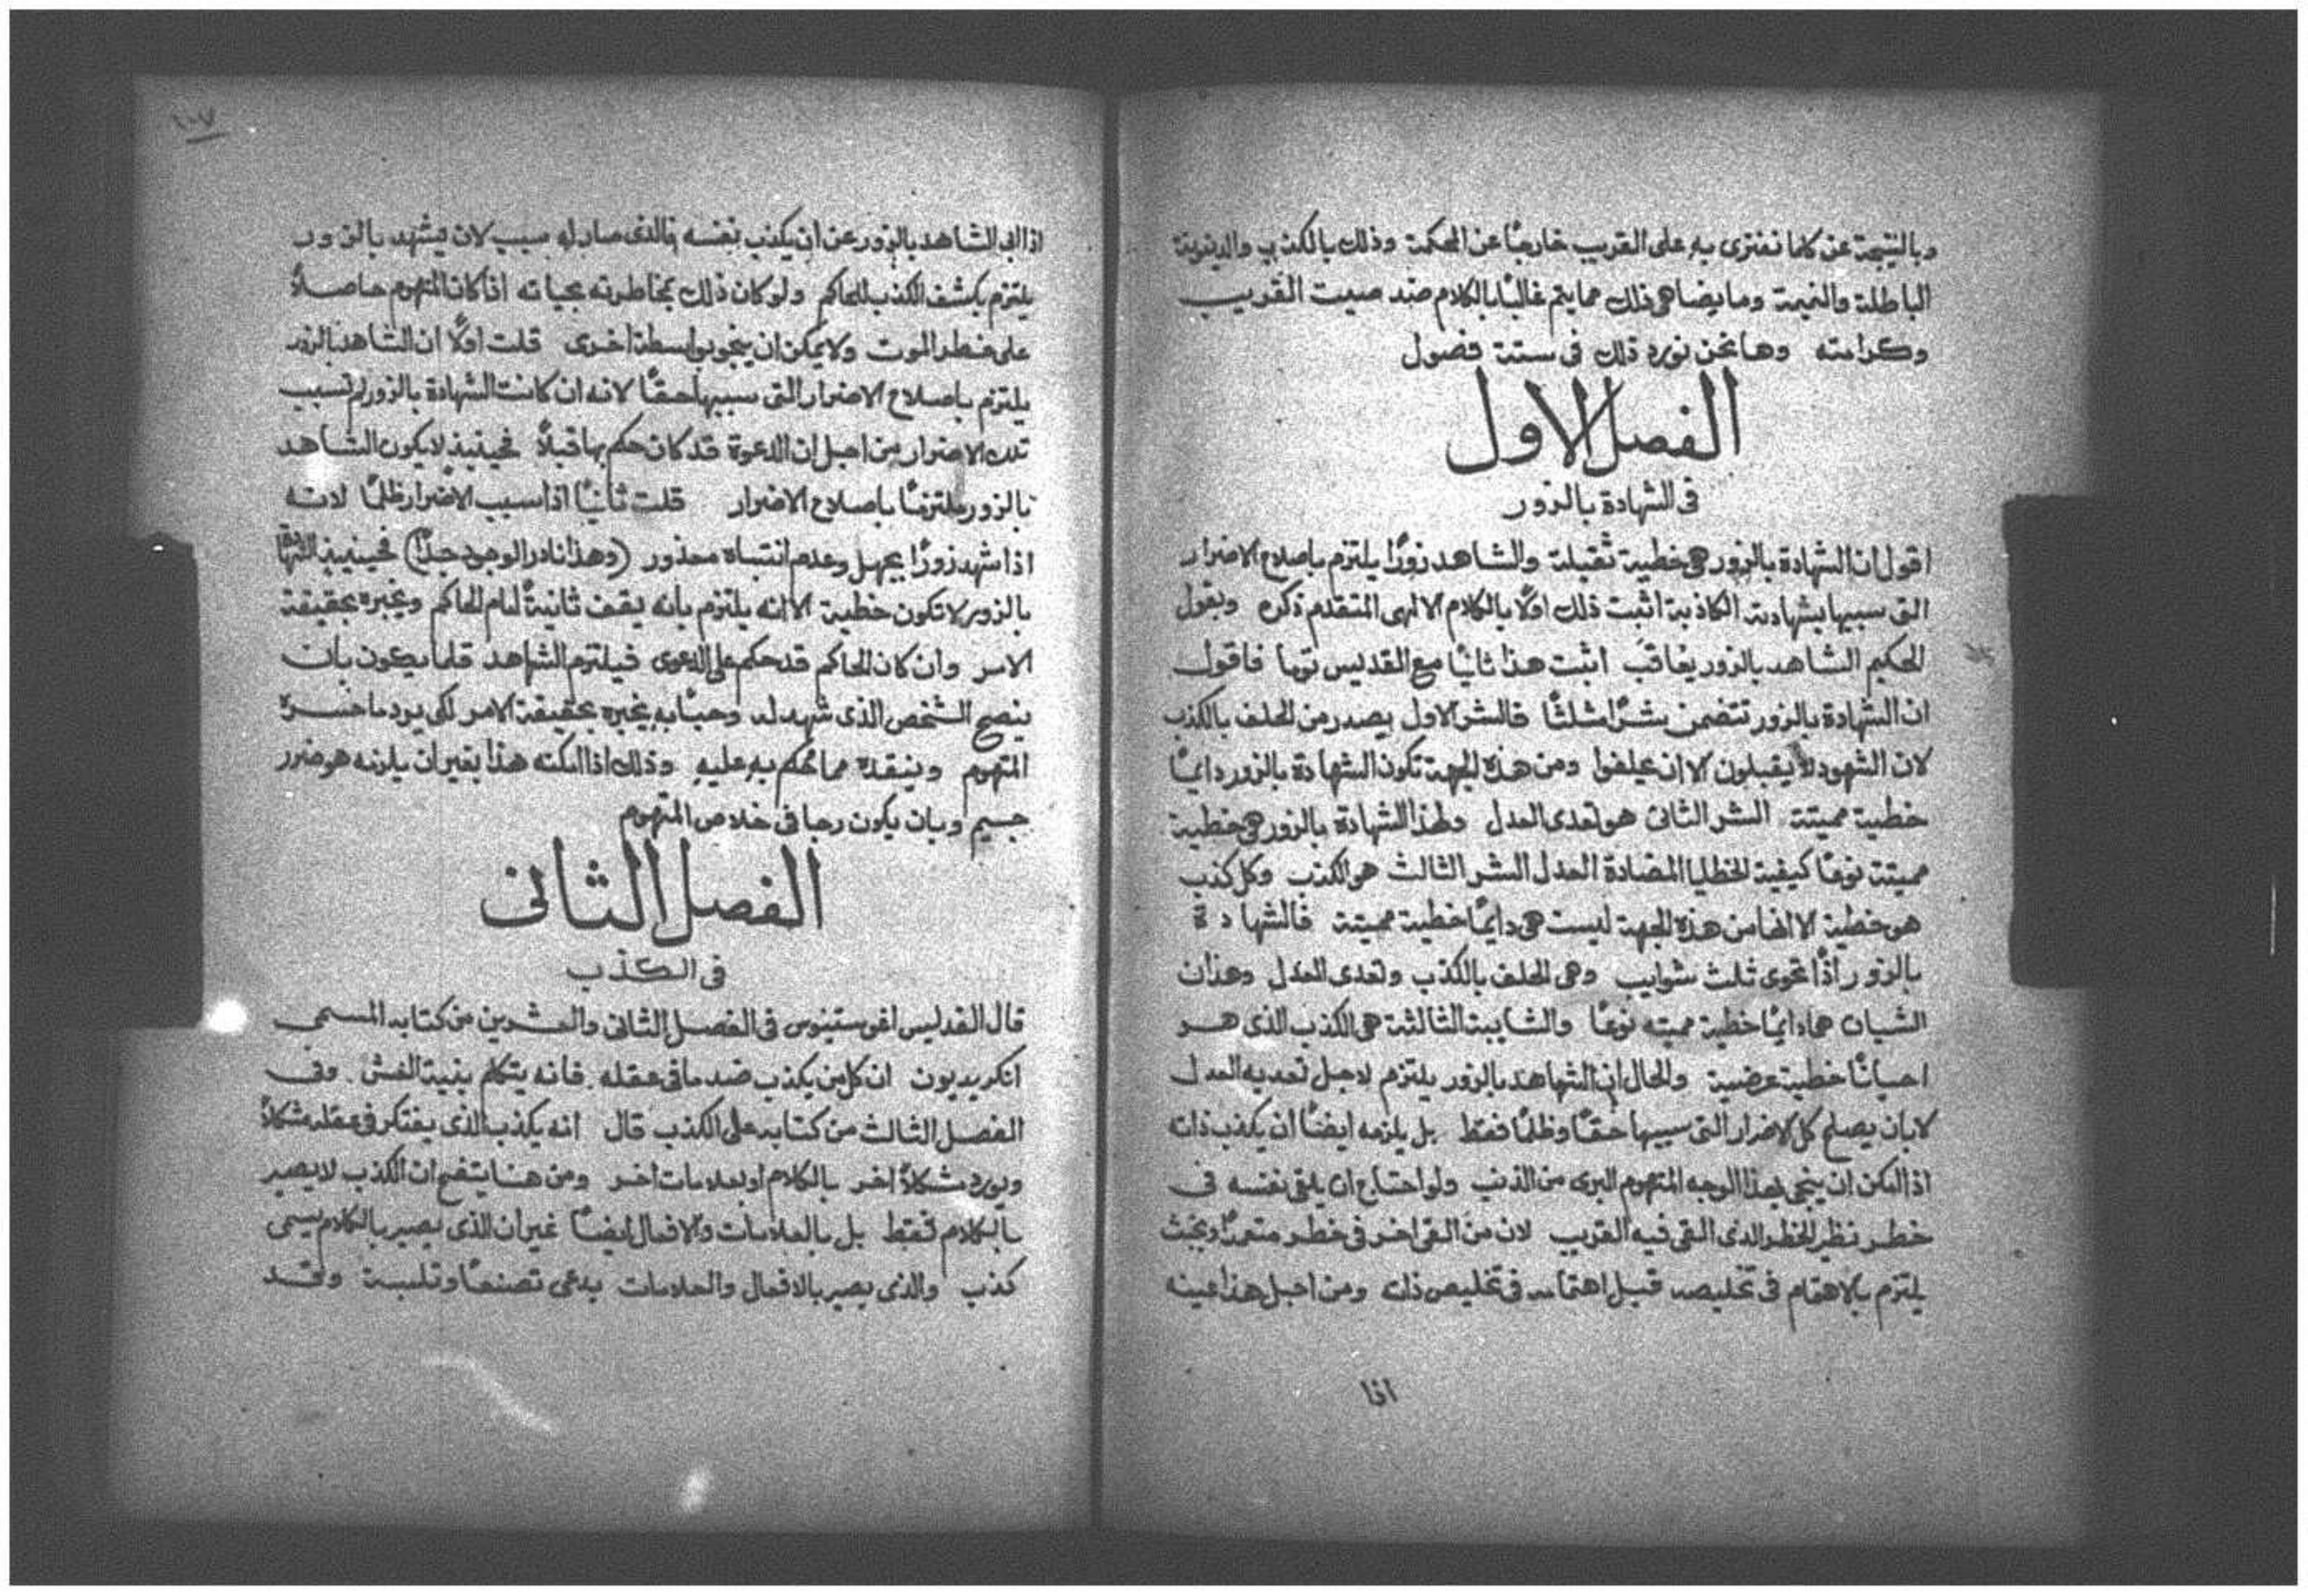 وبالنتيجة عن كلما نفترى به على القريب خارجًا عن المحكمة وذلك بالكذب والدينونة
الباطلة والنميمة وما يضاهى ذلك مما يتم غالبًا بالكلام ضد صيت القريب
وكرامته وها نحن نورد ذلك فى ستة فصول
الفصل الاول
فى الشهادة بالزور
اقول ان الشهادة بالزور هى خطية ثقيلة والشاهد زورًا يلتزم باصلاح الاضرار
التى سببها بشهادته الكاذبة اثبت ذلك اولًا بالكلام الالهى المتقدم ذكره وبقول
الحكيم الشاهد بالزور يعاقب اثبت هذا ثانيًا مع القديس توما فاقول
ان الشهادة بالزور تتضمن شرًا مثلثًا فالشر الاول يصدر من الحلف بالكذب
لان الشهود لا يقبلون الا ان يحلفوا ومن هذه الجهة تكون الشهادة بالزور دايمًا
خطية مميتة الشر الثانى هو تعدى العدل ولهذا الشهادة بالزور هى خطية
مميتة نوعًا كيفية الخطايا المضادة العدل الشر الثالث هو الكذب وكل كذب
هو خطية الا انها من هذه الجهة ليست هى دايمًا خطية مميتة فالشهادة
بالزور اذًا تحوى ثلث شوايب وهى الحلف بالكذب وتعدى العدل وهذان
الشيان هما دايمًا خطية مميته نوعًا والشايبة الثالثة هى الكذب الذى هو
احيانًا خطية عرضية والحال ان الشاهد بالزور يلتزم لاجل تعديه العدل
لا بان يصلح كل الاضرار التى سببها حقًا وظلمًا فقط بل يلزمه ايضًا ان يكذب ذاته
اذا امكن ان ينجى بهذا الوجه المتهوم البرى من الذنب ولو احتاج ان يلقى نفسه فى
خطر نظير الخطر الذى القى فيه القريب لان من القى اخر فى خطر متعمدًا وبخبث
يلتزم بالاهتمام فى تخليصه قبل اهتمامه فى تخليص ذاته ومن اجل هذا عينه
اذا
١٠٧
اذا ابى الشاهد بالزور عن ان يكذب نفسه فالذى صار له سبب لان يشهد بالزور
يلتزم بكشف الكذب للحاكم ولو كان ذلك بمخاطرته بحياته اذا كان المتهوم حاصلًا
على خطر الموت ولا يمكن ان ينجو بواسطة اخرى قلت اولًا ان الشاهد بالزور
يلتزم باصلاح الاضرار التى سببها حقًا لانه ان كانت الشهادة بالزور لم تسبب
تلك الاضرار من اجل ان الدعوة قد كان حكم بها قبلًا فحينيذ لا يكون الشاهد
بالزور ملتزمًا باصلاح الاضرار قلت ثانيًا اذا سبب الاضرار ظلمًا لانه
اذا شهد زورًا بجهل وعدم انتباه معذور (وهذا نادر الوجود جدًا) فحينيذ الشهادة
بالزور لا تكون خطية الا انه يلتزم بانه يقف ثانيةً امام الحاكم ويخبره بحقيقة
الامر وان كان الحاكم قد حكم على الدعوى فيلتزم الشاهد قلما يكون بان
ينصح الشخص الذى شهد له وحبًا به يخبره بحقيقة الامر لكى يرد ما خسره
المتهوم وينقذه مما حكم به عليه وذلك اذا امكنه هذا بغير ان يلزمه هو ضرر
جسيم وبان يكون رجا فى خلاص المتهوم
الفصل الثانى
فى الكذب
قال القديس اغوستينوس فى الفصل الثانى والعشرين من كتابه المسمى
انكريديون ان كل من يكذب ضد ما فى عقله فانه يتكلم بنية الغش وفى
الفصل الثالث من كتابه على الكذب قال انه يكذب الذى يفتكر فى عقله شكلًا
ويورد شكلًا اخر بالكلام او بعلامات اخر ومن هنا يتضح ان الكذب لا يصير
بالكلام فقط بل بالعلامات والافعال ايضًا غير ان الذى يصير بالكلام يسمى
كذب والذى يصير بالافعال والعلامات يدعى تصنعًا وتلبسة وقد